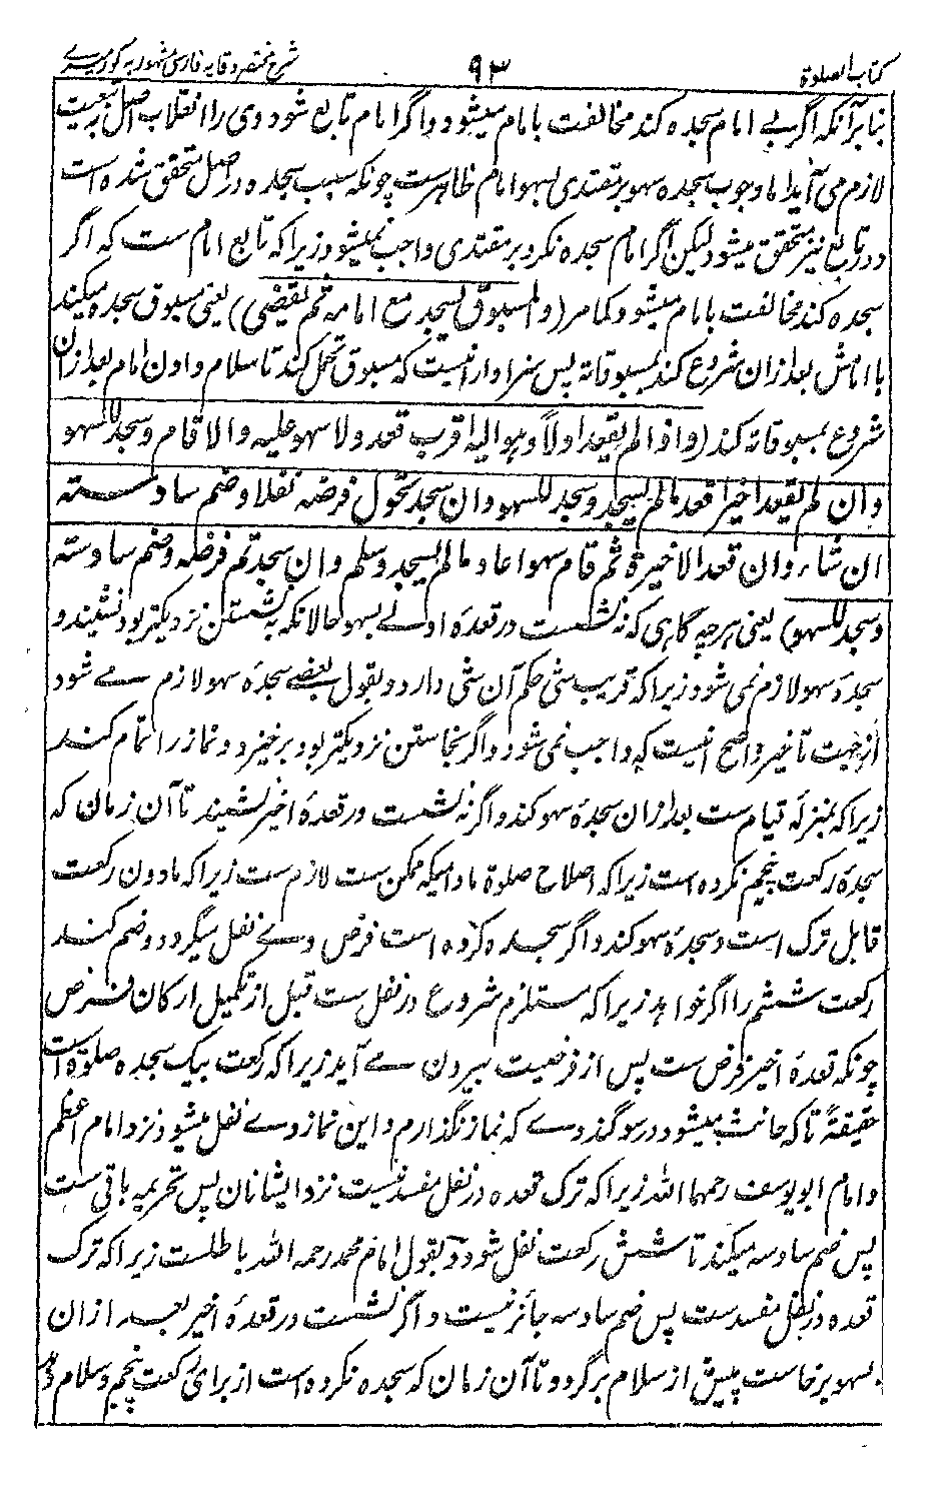 کتاب الصلوة ۹۳ شرح مختصر وقایه فارسی مشهور به کورمیری
بنا بر آنکه اگر بے امام سجده کند مخالفت با امام میشود و اگر امام تابع شود وی را انقلاب اصل به تبعیت
لازم می آید اما وجوب سجده سهو بر مقتدی بسهو امام ظاهرست چونکه سبب سجده در اصل متحقق شده است
و در تابع نیز متحقق میشود لیکن اگر امام سجده نکرد بر مقتدی واجب نمیشود زیراکه تابع امام ست که اگر
سجده کند مخالفت با امام میشود کما مر (والمسبوق یسجد مع امامه ثم یقضی) یعنی مسبوق سجده میکند
با امامش بعد ازان شروع کند بمسبوقانه پس سزاوار انیست که مسبوق تحمل کند تا سلام دادن امام بعد ازان
شروع بمسبوقانه کند (واذا لم یقعد اولاً وهو الیه اقرب قعد ولا سهو علیه والا قام وسجد للسهو
وان لم یقعد اخیرا قعد مالم یسجد وسجد للسهو وان سجد تحول فرضه نفلا وضم سادسته
ان شاء وان قعد الاخیرة ثم قام سهوا عاد مالم یسجد وسلم وان سجد تم فرضه وضم سادسته
وسجد للسهو) یعنی هر چه گاهی که نه نشست در قعدهٔ اولے بسهو حالانکه به نشستن نزدیکتر بود نشیند و
سجدهٔ سهو لازم نمی شود زیراکه قریب شی حکم آن شی دارد و بقول بعضے سجدهٔ سهو لازم مے شود
از جهت تاخیر و اصح انیست که واجب نمی شود و اگر بخاستن نزدیکتر بود برخیزد و نماز را تمام کند
زیراکه بمنزلهٔ قیام ست بعد ازان سجدهٔ سهو کند و اگر نه نشست در قعدهٔ اخیر نشیند تا آن زمان که
سجدهٔ رکعت پنجم نکرده است زیراکه اصلاح صلوة مادامیکه ممکن ست لازم ست زیراکه مادون رکعت
قابل ترک است و سجدهٔ سهو کند و اگر سجده کرده است فرض وے نفل میگردد و ضم کند
رکعت ششم را اگر خواهد زیراکه مستلزم شروع در نفل ست قبل از تکمیل ارکان فرض
چونکه قعدهٔ اخیر فرض ست پس از فرضیت بیرون مے آید زیراکه رکعت بیک سجده صلوة است
حقیقةً تا که حانث میشود در سوگند وے که نماز نگذارم و این نماز وے نفل میشود نزد امام اعظم
و امام ابو یوسف رحمهما الله زیراکه ترک قعده در نفل مفسد نیست نزد ایشانان پس تحریمه باقی ست
پس ضم سادسه میکند تا شش رکعت نفل شود و بقول امام محمد رحمه الله باطلست زیراکه ترک
قعده در نفل مفسدست پس ضم سادسه جائز نیست و اگر نشست در قعدهٔ اخیر بعد ازان
بسهو برخاست پیش از سلام برگردد تا آن زمان که سجده نکرده است از برای رکعت پنجم و سلام